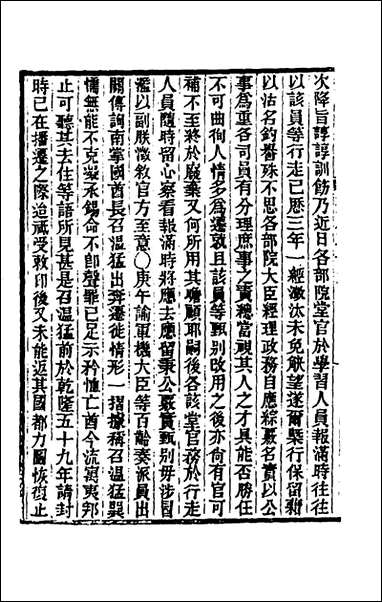 次降旨諄諄訓飭乃近日各部院堂官於學習人員報滿時往往
以該員等行走已歷三年一經澂汰未免觖望遂爾槩行保留藉
以沽名釣譽殊不思各部院大臣經理政務自應綜覈名實以公
事為重各司員有分理庶事之責總當視其人之才具能否勝任
不可曲徇人情多為遷就且該員等甄别改用之後亦尚有官可
補不至終於廢棄又何所用其瞻顧耶嗣後各該堂官務於行走
人員隨時留心察看報滿時將應去應留秉公覈實甄别毋涉冒
濫以副朕澂敘官方至意○庚午諭軍機大臣等百齡奏派員出
關傳詢南掌國酋長召温猛出奔遷徙情形一摺據稱召温猛巽
懦無能不克凝承錫命不卽聲罪已足示矜恤亡酋今流寓夷邦
止可聽其去住等語所見甚是召温猛前於乾隆五十九年請封
時已在播遷之際迨祗受敕印後又未能返其國都力圖恢復止